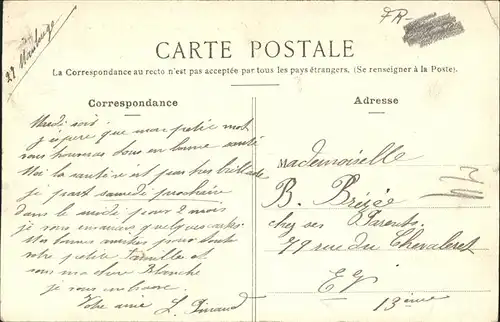 FR-
29 Maubeuge
CARTE POSTALE
La Correspondance au recto n'est pas acceptée par tous les pays étrangers. (Se renseigner à la Poste).
Correspondance
Adresse
Mardi soir
J'espère que mon petit mot
vous trouvera tous en bonne santé
Ma santé n'est pas très brillante
je part samedi prochain
dans le midi pour 2 mois
je vous enverrai quelques cartes
Mes bonnes amitiés pour toute
votre petite famille et
vous ma chère Blanche
je vous embrasse
Votre amie L.
Mademoiselle
B.
chez ses Parents
79 rue du Chevaleret
EV
13ème